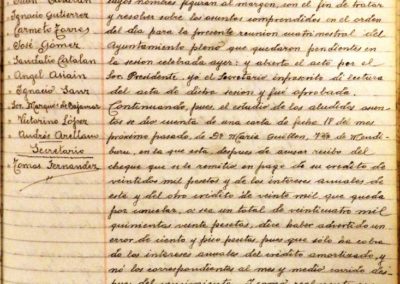 cuyos nombres figuran al margen, con el fin de tratar
" Ignacio Gutierrez
y resolver sobre los asuntos comprendidos en el orden
" Carmelo Torres
del día para la presente reunion cuatrimestral del
" José Gómez
Ayuntamiento pleno que quedaron pendientes en
" Sandalio Catalan
la sesion celebrada ayer: y abierto el acto por el
" Angel Asiain
Sor. Presidente, yo el Secretario infrascrito di lectura
" Ignacio Sanz
del acta de dicha sesion y fué aprobada.
" Sor. Marqués de
Continuando, pues, el estudio de los aludidos asun-
" Victorino López
tos se dio cuenta de una carta de fecha 18 del mes
" Andrés Arellano
próximo pasado, de Dª Maria Guillen, Vda de Mendi-
Secretario
buru, en la que esta despues de acusar recibo del
" Tomas Fernandez
cheque que se le remitió en pago de su credito de
veintidos mil pesetas y de los intereses anuales de
este y del otro crédito de veinte mil que queda
por cancelar, o sea un total de veinticuatro mil
quinientas veinte pesetas, dice haber advertido un
error de ciento y pico pesetas, pues que sólo ha cobra-
do los intereses anuales del crédito amortizado, y
nó los correspondientes al mes y medio corrido des-